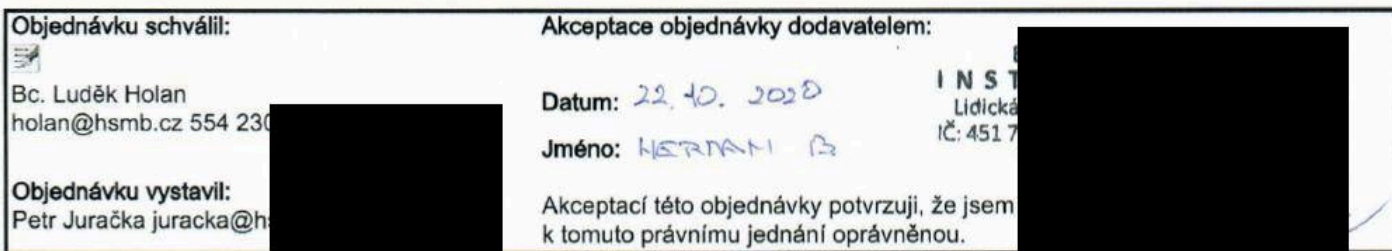 Objednávku schválil:
Bc. Luděk Holan
holan@hsmb.cz 554 230
Objednávku vystavil:
Petr Juračka juracka@h
Akceptace objednávky dodavatelem:
Datum: 22. 10. 2020
Jméno: HERMAN B
Akceptací této objednávky potvrzuji, že jsem
k tomuto právnímu jednání oprávněnou.
INST
Lidická
IČ: 451 7